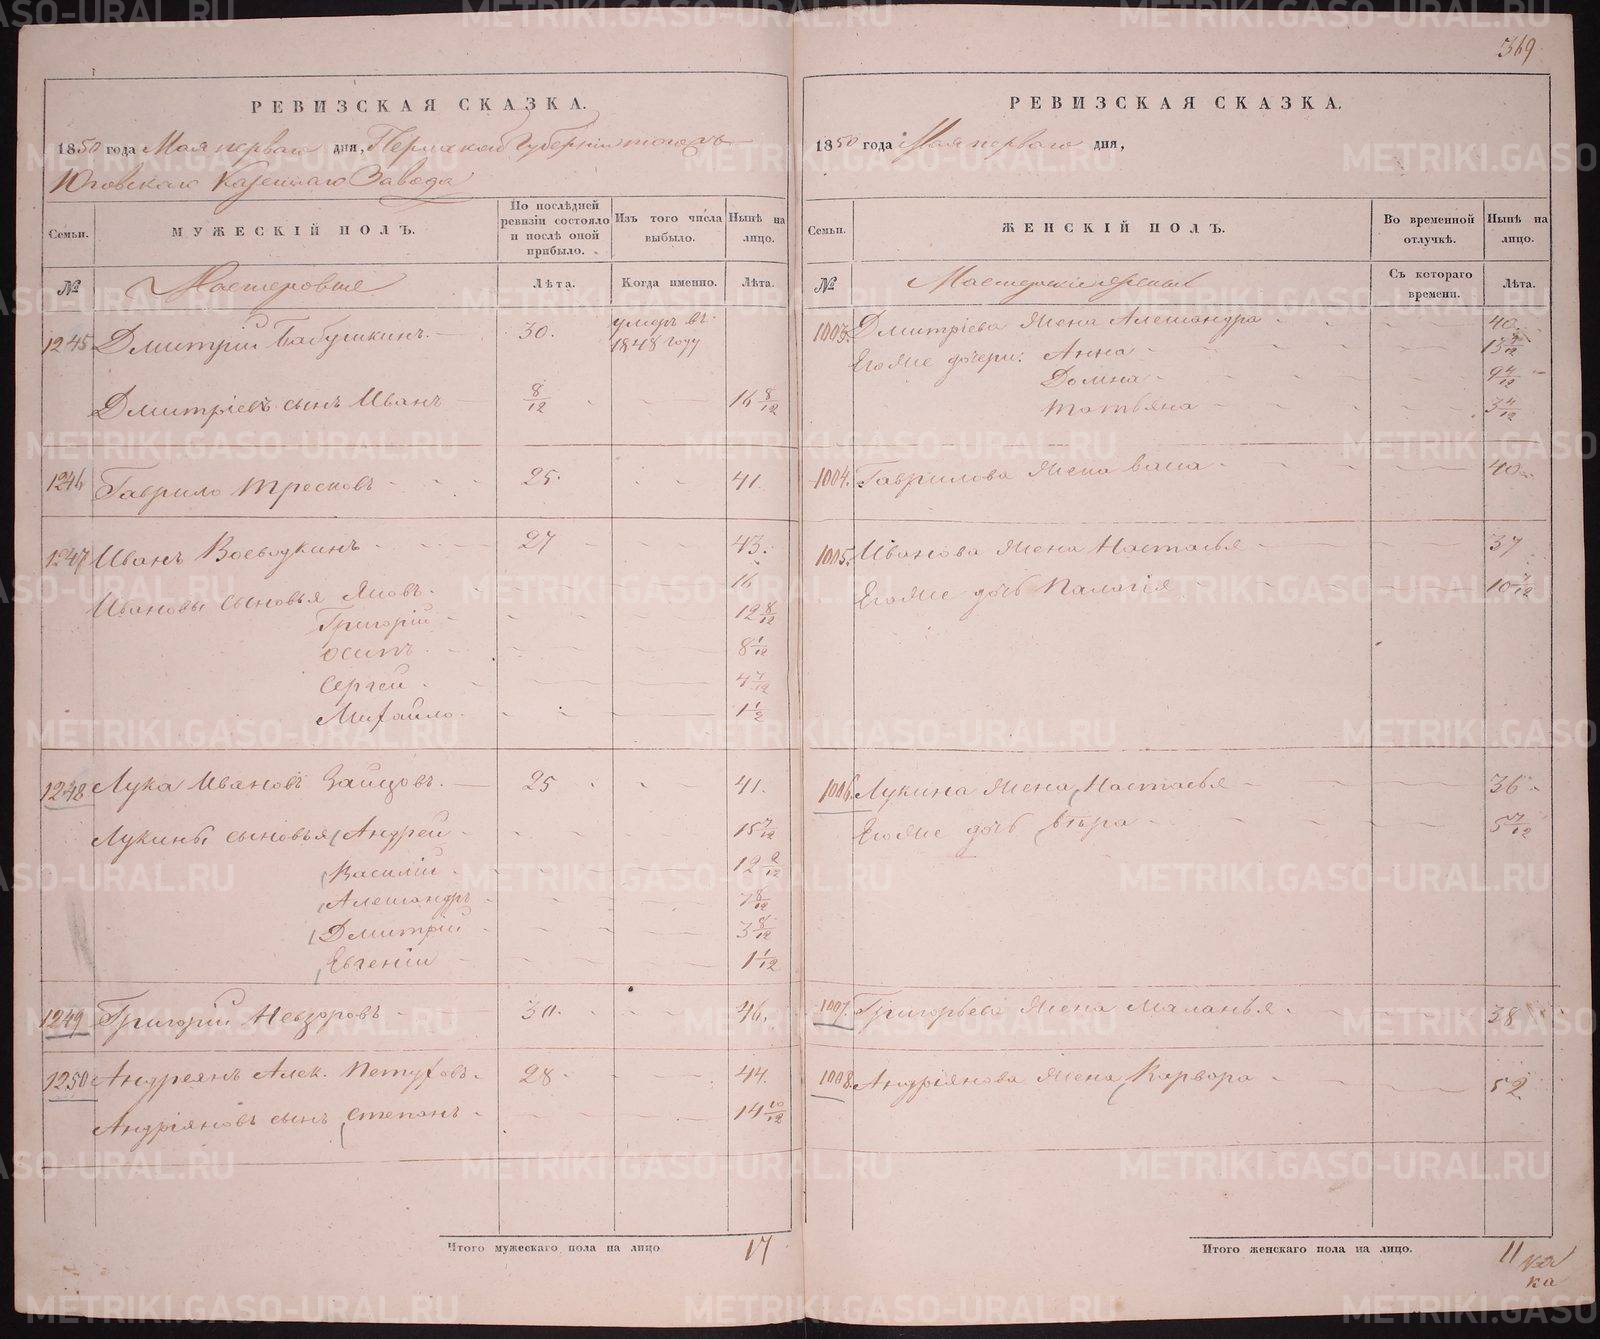 369
РЕВИЗСКАЯ СКАЗКА.
1850 года Мая перваго дня, Пермской Губернии
Юговскаго Казеннаго Завода
Семьи. МУЖЕСКІЙ ПОЛЪ. По послѣдней ревизіи состояло и послѣ оной прибыло. Изъ того числа выбыло. Нынѣ на лицо.
№ Мастеровые Лѣта. Когда именно. Лѣта.
1245 Дмитрій Бабушкинъ 30. умеръ въ 1848 году
Дмитріевъ сынъ Иванъ 8/12 16 8/12
1246 Гаврило Тресковъ 25. 41.
1247 Иванъ Воеводкинъ 27 43.
Ивановы сыновья Яковъ 16
Григорій 12 8/12
Осипъ 8 1/12
Сергей 4 7/12
Михайло 1 1/2
1248 Лука Ивановъ Зайцовъ 25 41.
Лукины сыновья Андрей 15 7/12
Василій 12 2/12
Александръ 7 8/12
Дмитрій 3 8/12
Евгеній 1 1/12
1249 Григорій Невзоровъ 30. 46.
1250 Андреянъ Алек. Петуховъ 28 44.
Андріяновъ сынъ Степанъ 14 10/12
Итого мужескаго пола на лицо 17
РЕВИЗСКАЯ СКАЗКА.
1850 года Мая перваго дня,
Семьи. ЖЕНСКІЙ ПОЛЪ. Во временной отлучкѣ. Нынѣ на лицо.
№ Съ котораго времени. Лѣта.
1003. Дмитріева жена Александра 40.
Егоже дочери: Анна 13 7/12
Домна 9 4/12
Татьяна 3 4/12
1004. Гаврилова жена 40
1005. Иванова жена Настасья 37
Егоже дочь Палагія 10 7/12
1006. Лукина жена Настасья 36
Егоже дочь Вѣра 5 7/12
1007. Григорьева жена Маланья 38
1008. Андріянова жена Варвора 52
Итого женскаго пола на лицо. 11
METRIKI.GASO-URAL.RU